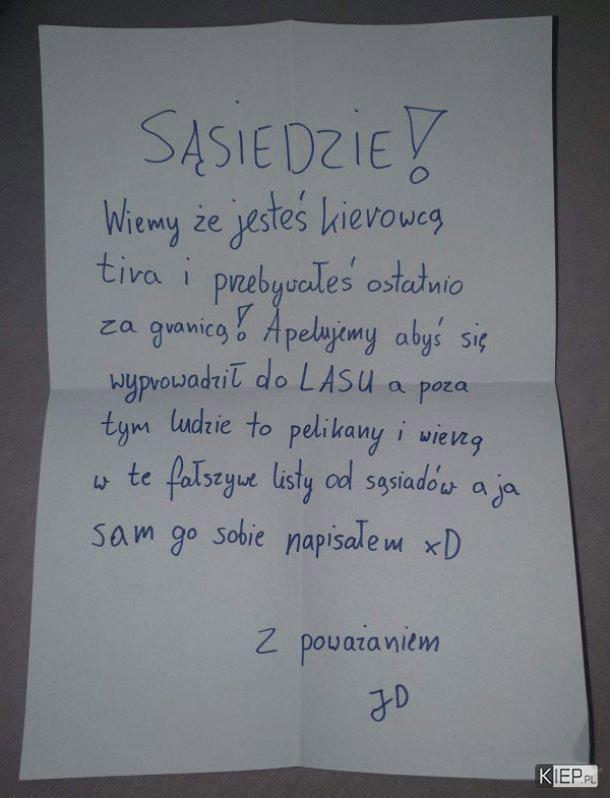 SĄSIEDZIE!
Wiemy że jesteś kierowcą
tira i przebywałeś ostatnio
za granicą! Apelujemy abyś się
wyprowadził do LASU a poza
tym ludzie to pelikany i wierzą
w te fałszywe listy od sąsiadów a ja
sam go sobie napisałem xD
Z poważaniem
JD
KIEP.PL